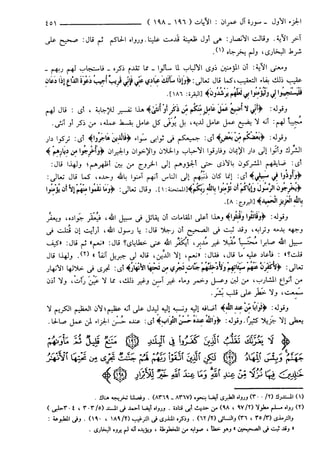 الجزء الأول - سورة آل عمران : الآيات ( ١٩٦ - ١٩٨ ) ٤٥١
آخر الآية . وقالت الأنصار : هي أول ظعينة قدمت علينا . ورواه الحاكم ثم قال : صحيح على
شرط البخاري ، ولم يخرجاه (١) .
ومعنى الآية : أن المؤمنين ذوي الألباب لما سألوا - مما تقدم ذكره - فاستجاب لهم ربهم -
عقب ذلك بفاء التعقيب ، كما قال تعالى : ﴿ وَإِذَا سَأَلَكَ عِبَادِي عَنِّي فَإِنِّي قَرِيبٌ أُجِيبُ دَعْوَةَ الدَّاعِ إِذَا دَعَانِ
فَلْيَسْتَجِيبُوا لِي وَلْيُؤْمِنُوا بِي لَعَلَّهُمْ يَرْشُدُونَ ﴾ [البقرة : ١٨٦] .
وقوله : ﴿ أَنِّي لَا أُضِيعُ عَمَلَ عَامِلٍ مِنْكُمْ مِنْ ذَكَرٍ أَوْ أُنْثَى ﴾ هذا تفسير للإجابة ، أي : قال لهم
مجيبًا لهم : أنه لا يضيع عمل عامل لديه ، بل يوفي كل عامل بقسط عمله ، من ذكر أو أنثى .
وقوله : ﴿ بَعْضُكُمْ مِنْ بَعْضٍ ﴾ أي : جميعكم في ثوابي سواء ﴿ فَالَّذِينَ هَاجَرُوا ﴾ أي : تركوا دار
الشرك وأتوا إلى دار الإيمان وفارقوا الأحباب والخلان والإخوان والجيران ﴿ وَأُخْرِجُوا مِنْ دِيَارِهِمْ ﴾
أي : ضايقهم المشركون بالأذى حتى ألجؤوهم إلى الخروج من بين أظهرهم ، ولهذا قال :
﴿ وَأُوذُوا فِي سَبِيلِي ﴾ أي : إنما كان ذنبهم إلى الناس أنهم آمنوا بالله وحده ، كما قال تعالى :
﴿ يُخْرِجُونَ الرَّسُولَ وَإِيَّاكُمْ أَنْ تُؤْمِنُوا بِاللَّهِ رَبِّكُمْ ﴾ [الممتحنة : ١] . وقال تعالى : ﴿ وَمَا نَقَمُوا مِنْهُمْ إِلَّا أَنْ يُؤْمِنُوا
بِاللَّهِ الْعَزِيزِ الْحَمِيدِ ﴾ [البروج : ٨] .
وقوله : ﴿ وَقَاتَلُوا وَقُتِلُوا ﴾ وهذا أعلى المقامات أن يقاتل في سبيل الله ، فيعقر جواده ، ويعفر
وجهه بدمه وترابه ، وقد ثبت في الصحيح أن رجلا قال : يا رسول الله ، أرأيت إن قتلت في
سبيل الله صابرا محتسبا مقبلا غير مدبر ، أيكفر الله عني خطاياي ؟ قال : « نعم » ثم قال : « كيف
قلت ؟ » : فأعاد عليه ما قال ، فقال : « نعم ، إلا الدين ، قاله لي جبريل آنفا » (٢) . ولهذا قال
تعالى : ﴿ لَأُكَفِّرَنَّ عَنْهُمْ سَيِّئَاتِهِمْ وَلَأُدْخِلَنَّهُمْ جَنَّاتٍ تَجْرِي مِنْ تَحْتِهَا الْأَنْهَارُ ﴾ أي : تجري في خلالها الأنهار
من أنواع المشارب ، من لبن وعسل وخمر وماء غير آسن وغير ذلك ، مما لا عين رأت ، ولا أذن
سمعت ، ولا خطر على قلب بشر .
وقوله : ﴿ ثَوَابًا مِنْ عِنْدِ اللَّهِ ﴾ أضافه إليه ونسبه إليه ليدل على أنه عظيم ؛ لأن العظيم الكريم لا
يعطي إلا جزيلا كثيرا . وقوله : ﴿ وَاللَّهُ عِنْدَهُ حُسْنُ الثَّوَابِ ﴾ أي : عنده حسن الجزاء لمن عمل صالحا .
﴿ لَا يَغُرَّنَّكَ تَقَلُّبُ الَّذِينَ كَفَرُوا فِي الْبِلَادِ مَتَاعٌ قَلِيلٌ ثُمَّ مَأْوَاهُمْ
جَهَنَّمُ وَبِئْسَ الْمِهَادُ لَكِنِ الَّذِينَ اتَّقَوْا رَبَّهُمْ لَهُمْ جَنَّاتٌ تَجْرِي مِنْ تَحْتِهَا الْأَنْهَارُ
خَالِدِينَ فِيهَا نُزُلًا مِنْ عِنْدِ اللَّهِ وَمَا عِنْدَ اللَّهِ خَيْرٌ لِلْأَبْرَارِ ﴾
(١) المستدرك (٢/ ٣٠٠) ورواه الطبري أيضا بنحوه (٨٣٦٧ - ٨٣٦٩) . وفصلنا تخريجه هناك .
(٢) رواه مسلم مطولا (٢/ ٩٧ ، ٩٨) من حديث أبي قتادة . ورواه أيضا أحمد في المسند (٥/ ٣٠٣، ٣٠٤ حلبي)
والترمذي (٣/ ٣٥) والنسائي (٢/ ٦٢) . وذكره المنذري في الترغيب (٢/ ١٨٩ ، ١٩٠) . وفي المطبوعة :
« وقد ثبت في الصحيحين » وهو خطأ ، صوابه من المخطوطة ، ويؤيده أنه لم يروه البخاري .